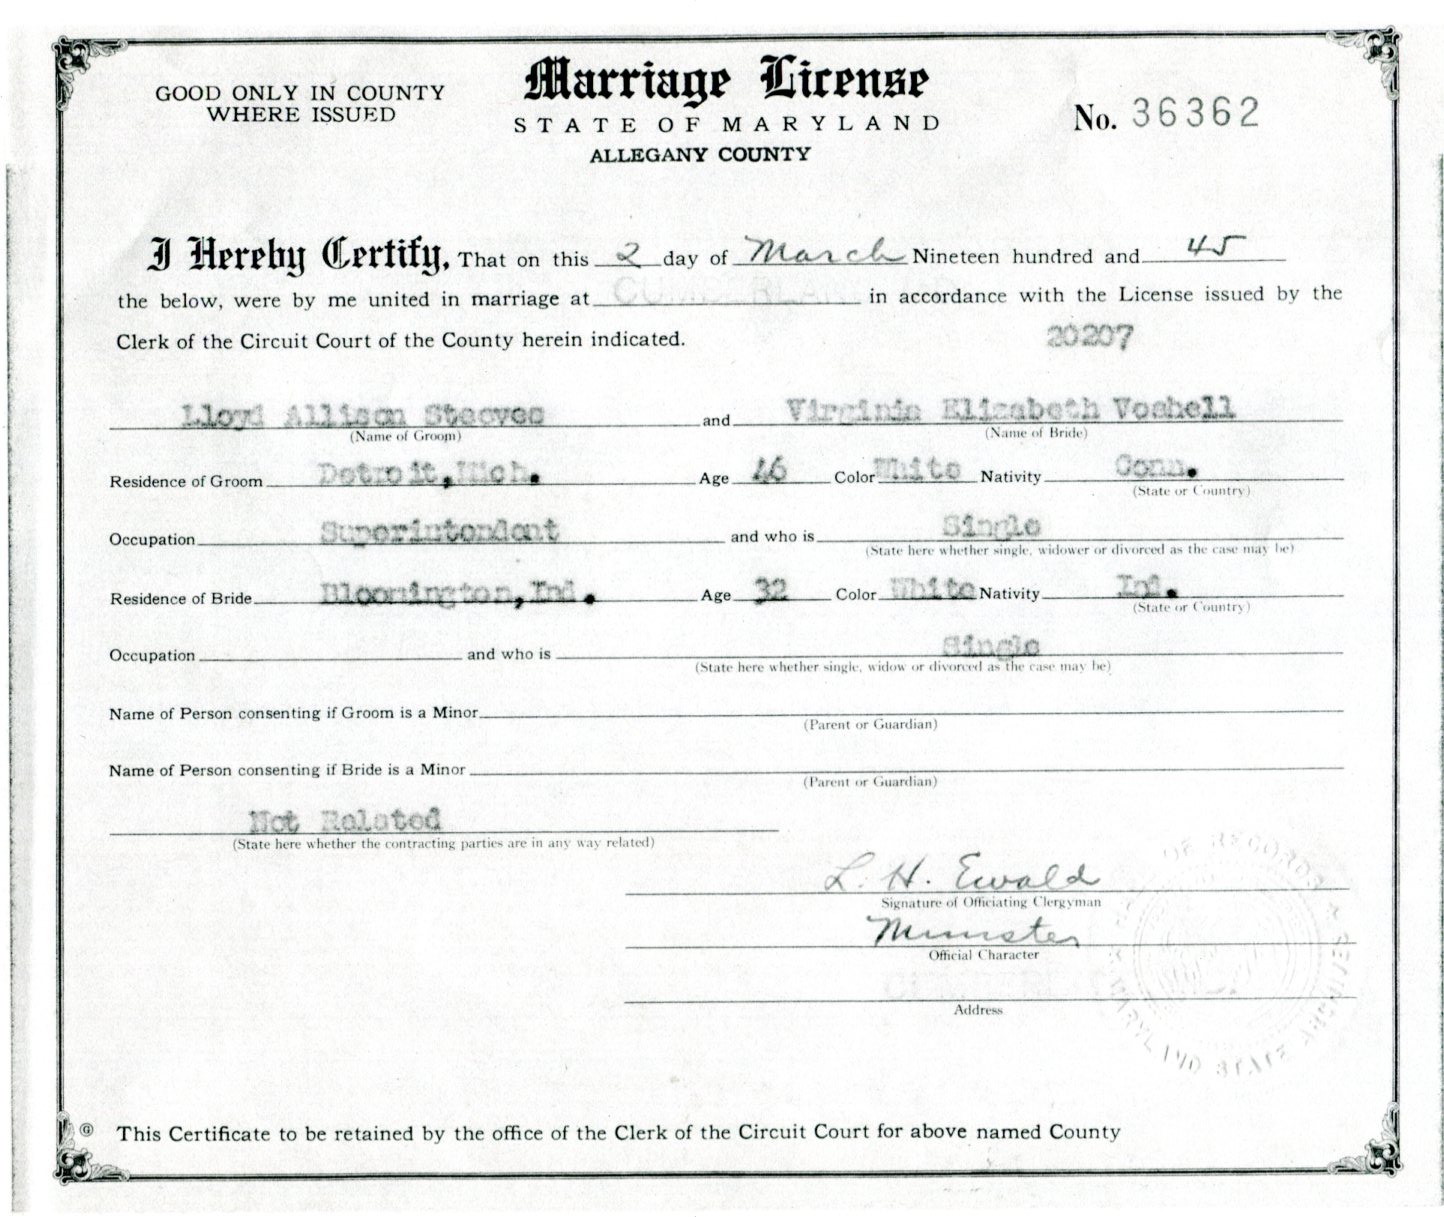 GOOD ONLY IN COUNTY
WHERE ISSUED
Marriage License
STATE OF MARYLAND
ALLEGANY COUNTY
No. 36362
I Hereby Certify, That on this 2 day of March Nineteen hundred and 45
the below, were by me united in marriage at CUMBERLAND in accordance with the License issued by the
Clerk of the Circuit Court of the County herein indicated.
20207
Lloyd Allison Steeves and Virginia Elizabeth Voshell
(Name of Groom) (Name of Bride)
Residence of Groom Detroit, Mich. Age 46 Color White Nativity Conn.
(State or Country)
Occupation Superintendent and who is Single
(State here whether single, widower or divorced as the case may be)
Residence of Bride Bloomington, Ind. Age 32 Color White Nativity Ind.
(State or Country)
Occupation and who is Single
(State here whether single, widow or divorced as the case may be)
Name of Person consenting if Groom is a Minor
(Parent or Guardian)
Name of Person consenting if Bride is a Minor
(Parent or Guardian)
Not Related
(State here whether the contracting parties are in any way related)
L. H. Ewald
Signature of Officiating Clergyman
Minister
Official Character
Address
OF RECORDS
MARYLAND STATE ARCHIVES
G This Certificate to be retained by the office of the Clerk of the Circuit Court for above named County